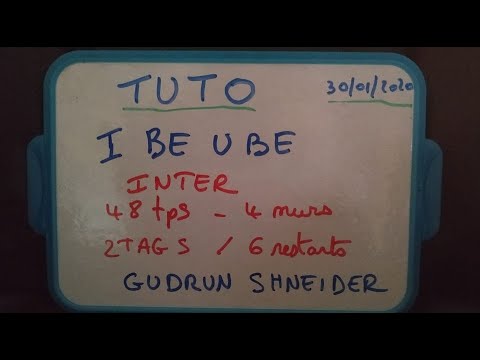 TUTO
30/01/2020
I BE U BE
INTER
48 tps - 4 murs
2 TAGS / 6 restarts
GUDRUN SHNEIDER